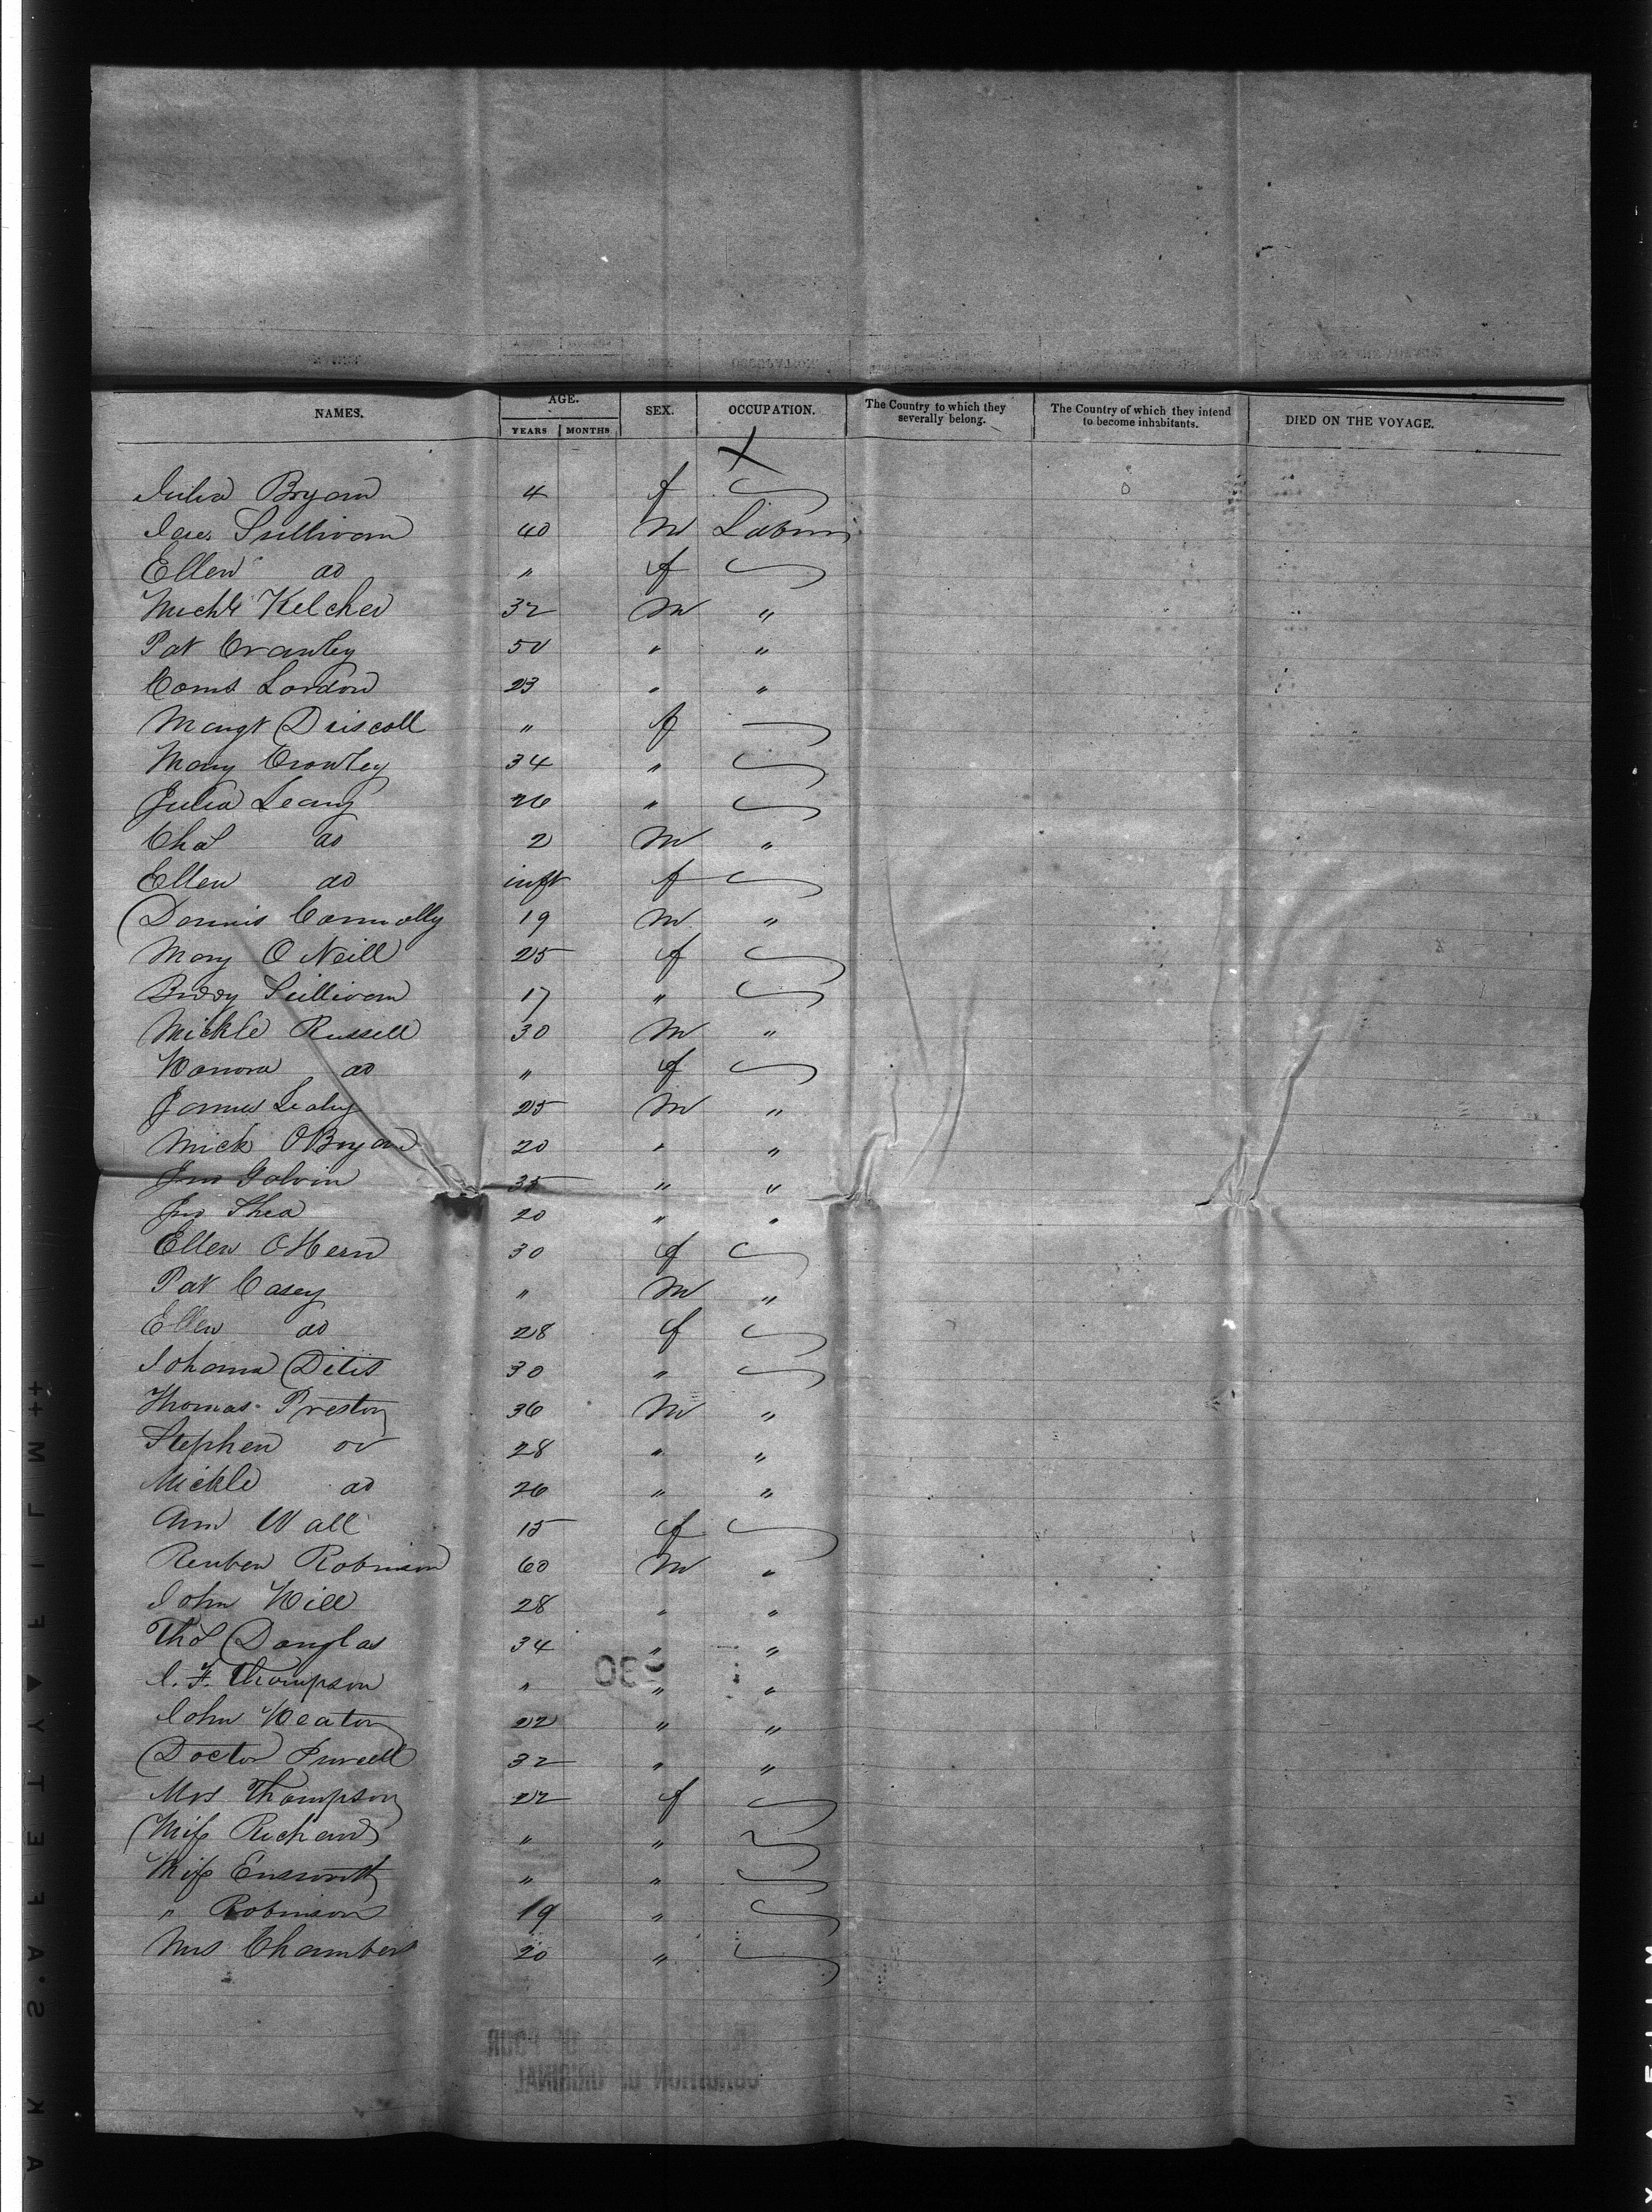 NAMES. AGE. SEX. OCCUPATION. The Country to which they severally belong. The Country of which they intend to become inhabitants. DIED ON THE VOYAGE.
YEARS MONTHS
X
Julia Bryan 4 f
Sullivan 40 M Labour
Ellen do " f
Michl Kelcher 32 M "
Pat Crawley 50 " "
Corns Lordon 23 " "
Margt Driscoll " f
Mary Crowley 34 "
Julia Leary 26 "
Chas do 2 M "
Ellen do inft f
Dennis Connolly 19 M "
Mary O Neill 25 f
Biddy Sullivan 17 "
Mickle Russell 30 M "
Honora do " f
James Leahy 25 M "
Mick OBryan 20 " "
Jno Galvin 35 " "
Jno Shea 20 " "
Ellen OHern 30 f
Pat Casey " M "
Ellen do 28 f
Johanna 30 "
Thomas Preston 36 M "
Stephen do 28 " "
Mickle do 26 " "
Ann Wall 15 f
Reuben Robinson 60 M "
John Hill 28 " "
Thos Douglas 34 " "
F. Thompson " " "
John Heaton 22 " "
Doctor Purcell 32 " "
Mrs Thompson 22 f
Miss Richard " "
Miss Ensworth " "
" Robinson 19 "
Mrs Chambers 20 "